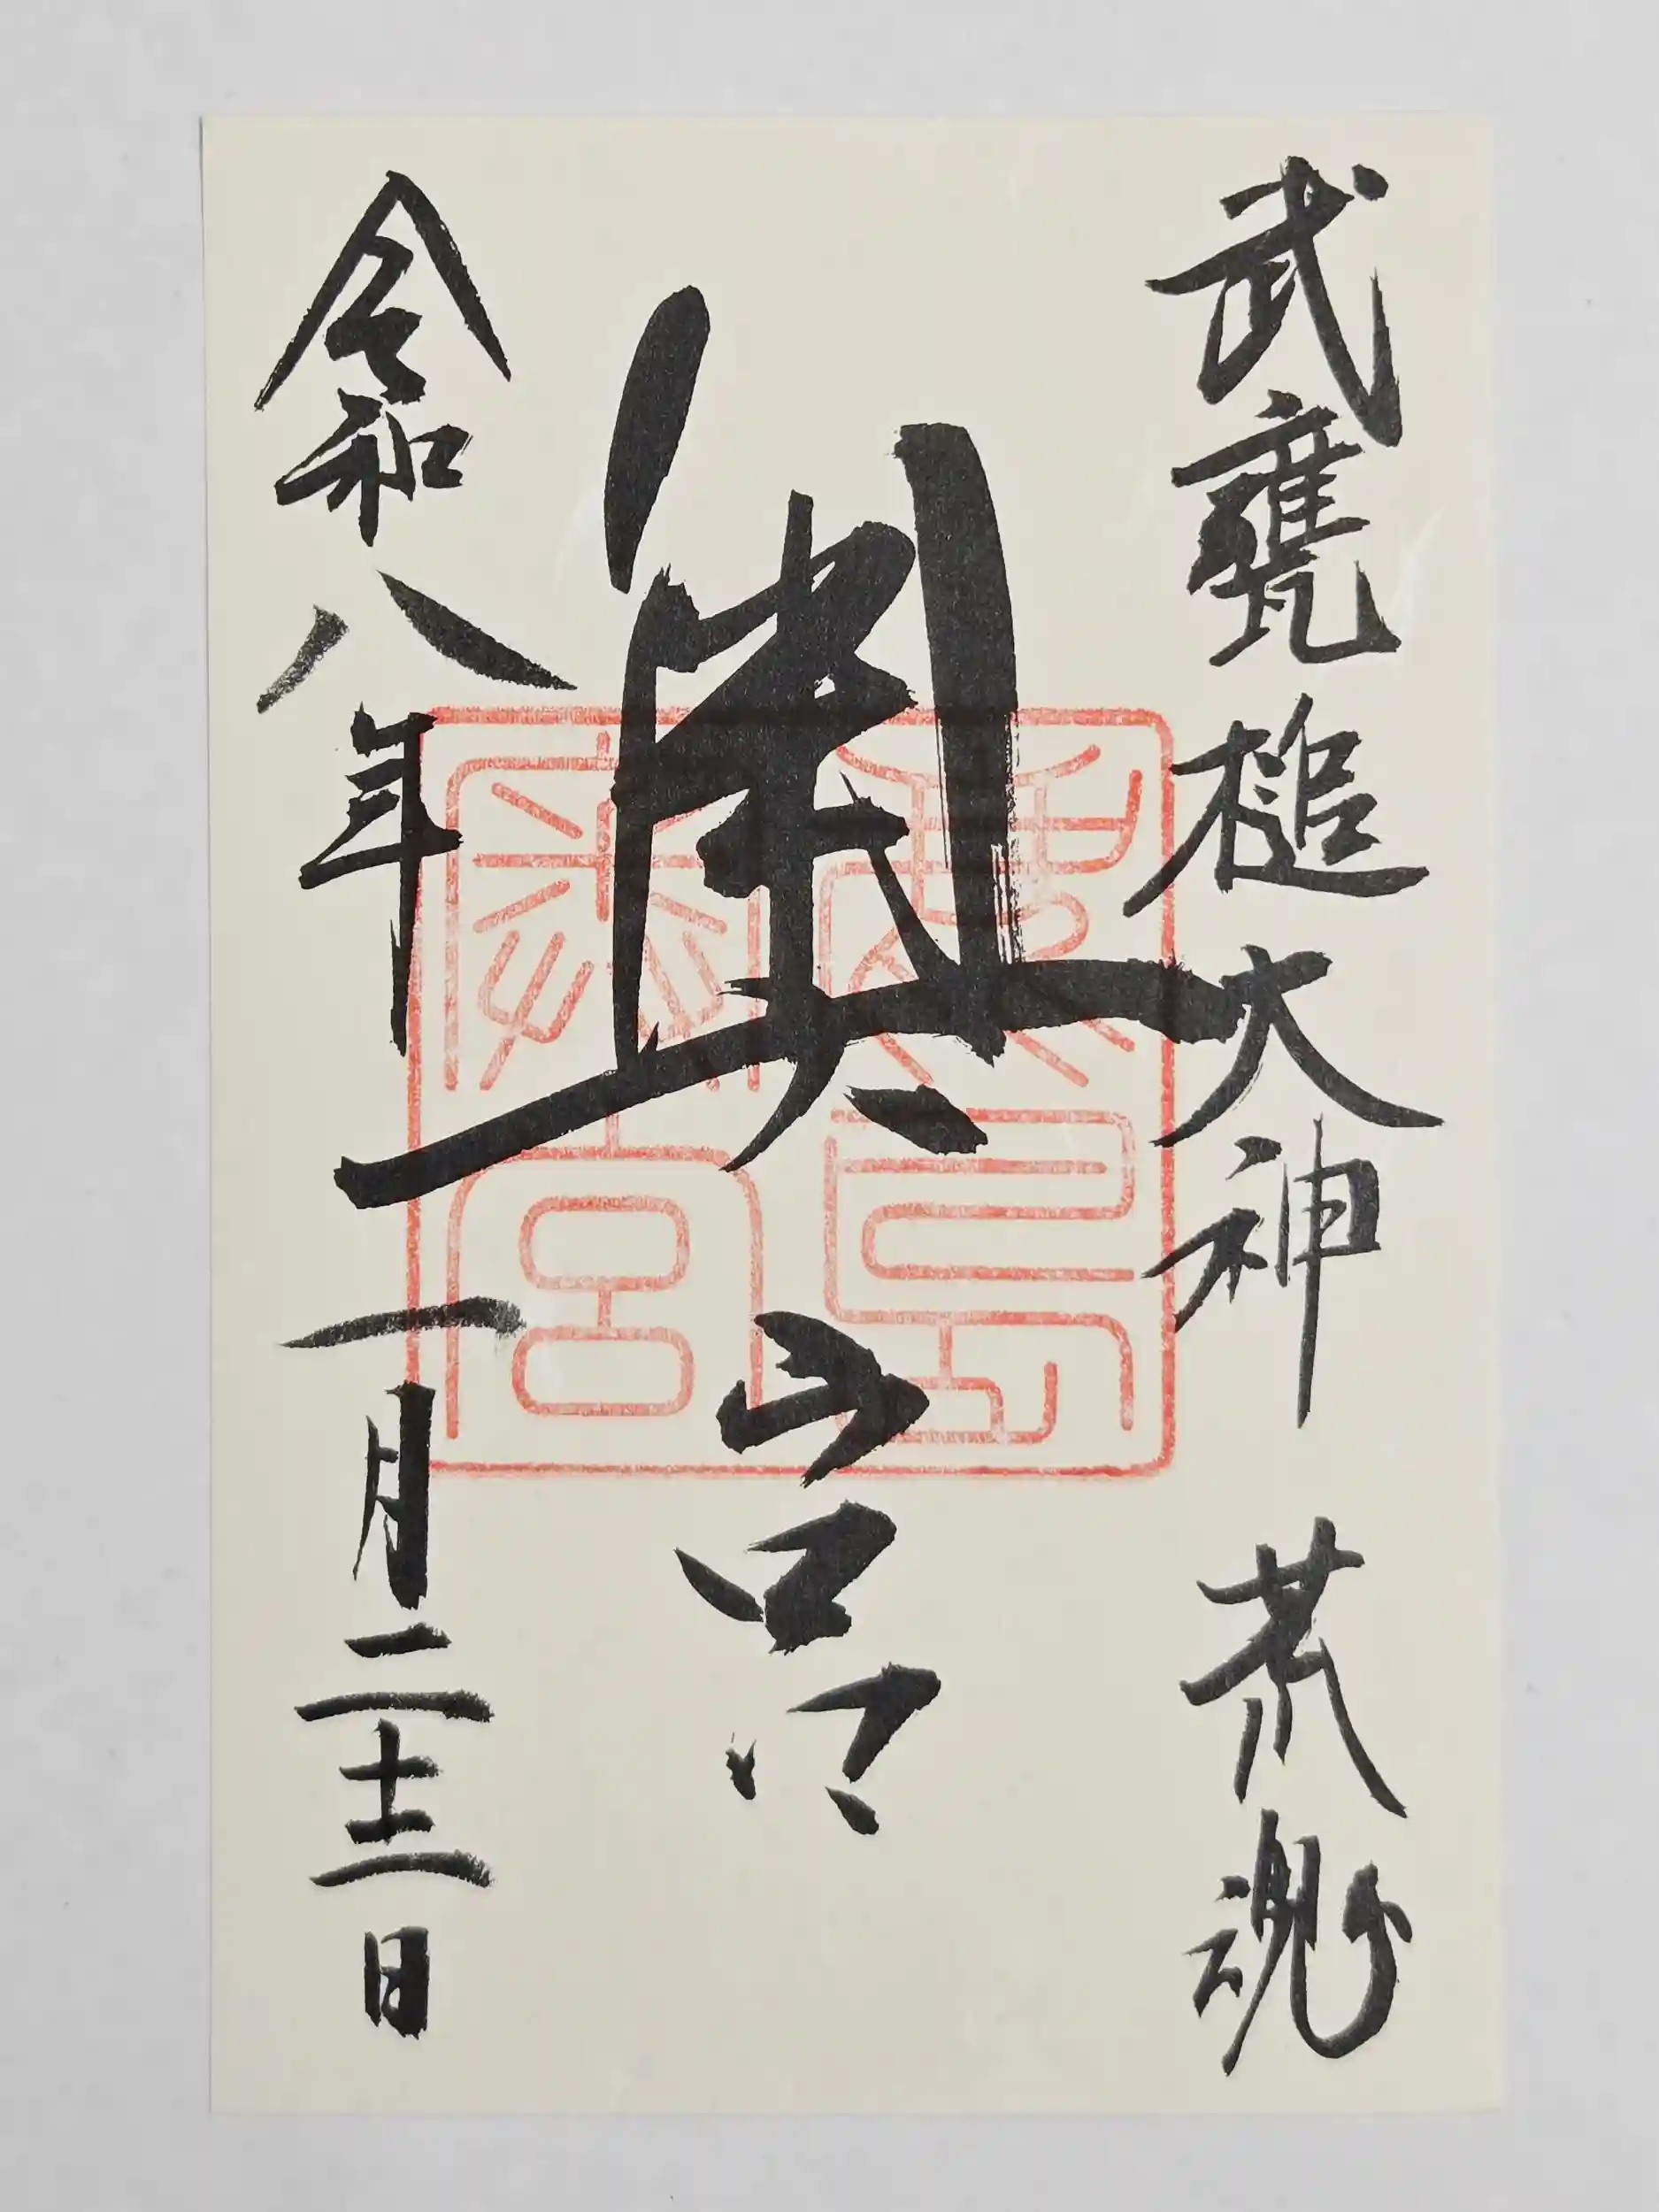 武甕槌大神　荒魂
奥宮
令和八年一月二十二日
鹿島
奥宮